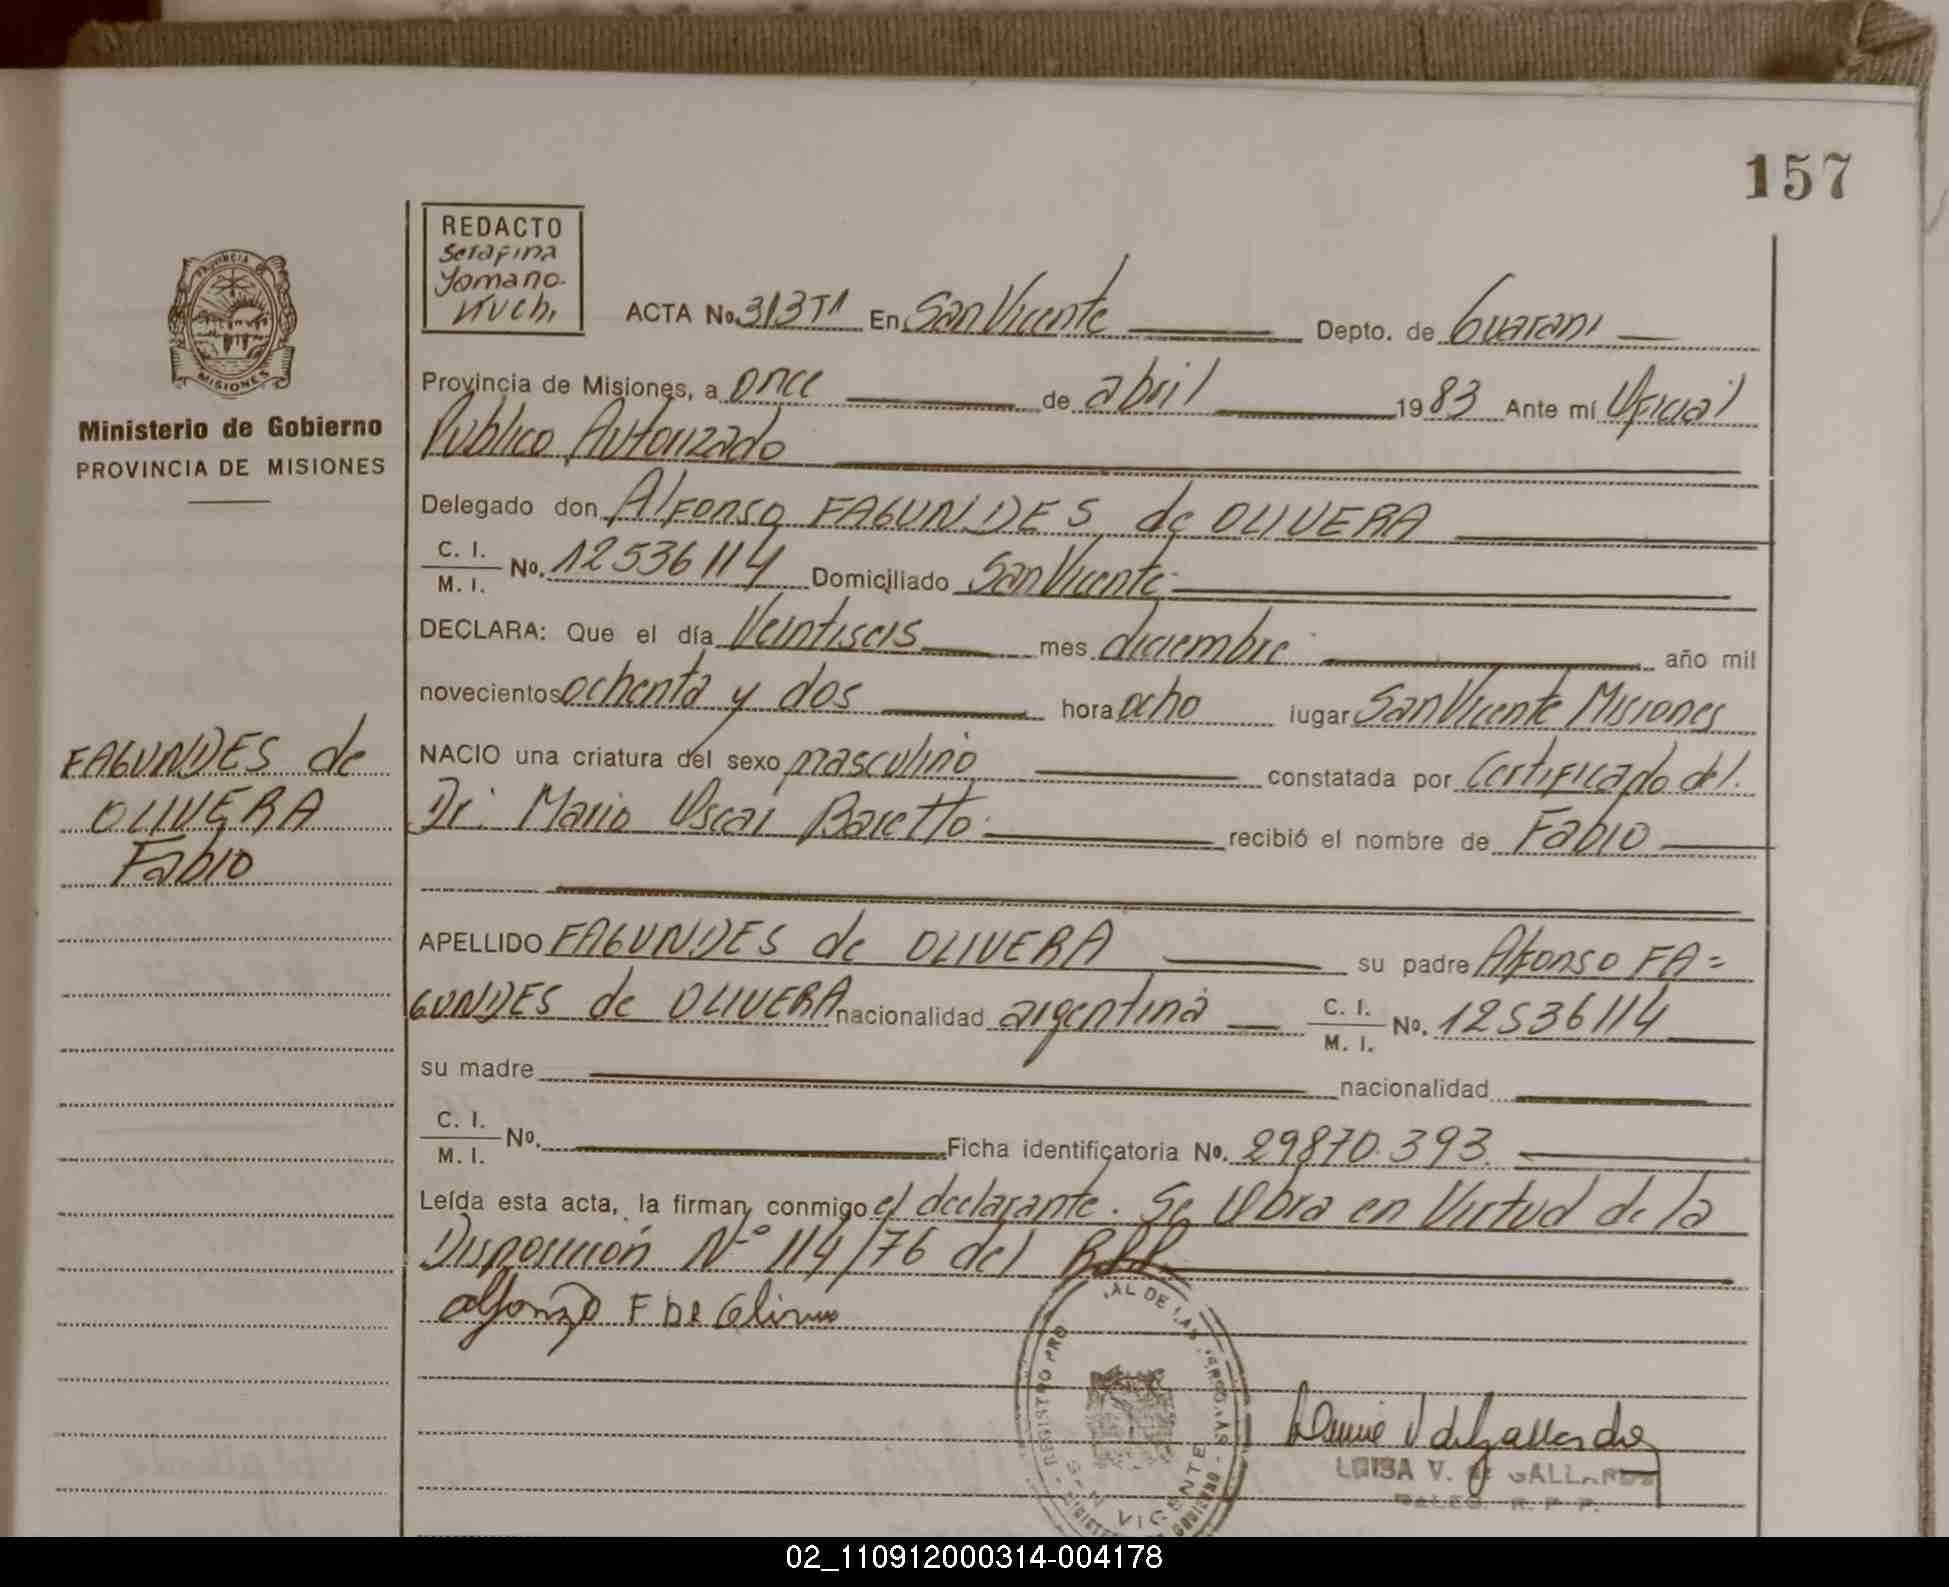 157
REDACTO
Serafina
Yomano
Kuch.
PROVINCIA
MISIONES
Ministerio de Gobierno
PROVINCIA DE MISIONES
ACTA No. 313T1 En San Vicente Depto. de Guarani
Provincia de Misiones, a once de abril 1983 Ante mí Oficial
Publico Autorizado
Delegado don Alfonso FAGUNDES de OLIVERA
C. I.
M. I. No. 12536114 Domiciliado San Vicente
DECLARA: Que el día Veintiseis mes diciembre año mil
novecientos ochenta y dos hora ocho lugar San Vicente Misiones
NACIO una criatura del sexo masculino constatada por Certificado del
Dr. Mario Oscar Baretto recibió el nombre de Fabio
FAGUNDES de
OLIVERA
Fabio
APELLIDO FAGUNDES de OLIVERA su padre Alfonso FA=
GUNDES de OLIVERA nacionalidad argentina C. I.
M. I. No. 12536114
su madre nacionalidad
C. I.
M. I. No. Ficha identificatoria No. 29870.393.
Leída esta acta, la firman conmigo el declarante. Se Obra en Virtud de la
Disposición N° 114/76 del RPP
Alfonzo F De Oliver
REGISTRO PRO AL DE LAS PERSONAS
SAN VICENTE
LUISA V. de GALLARDO
R. P. P.
02_110912000314-004178